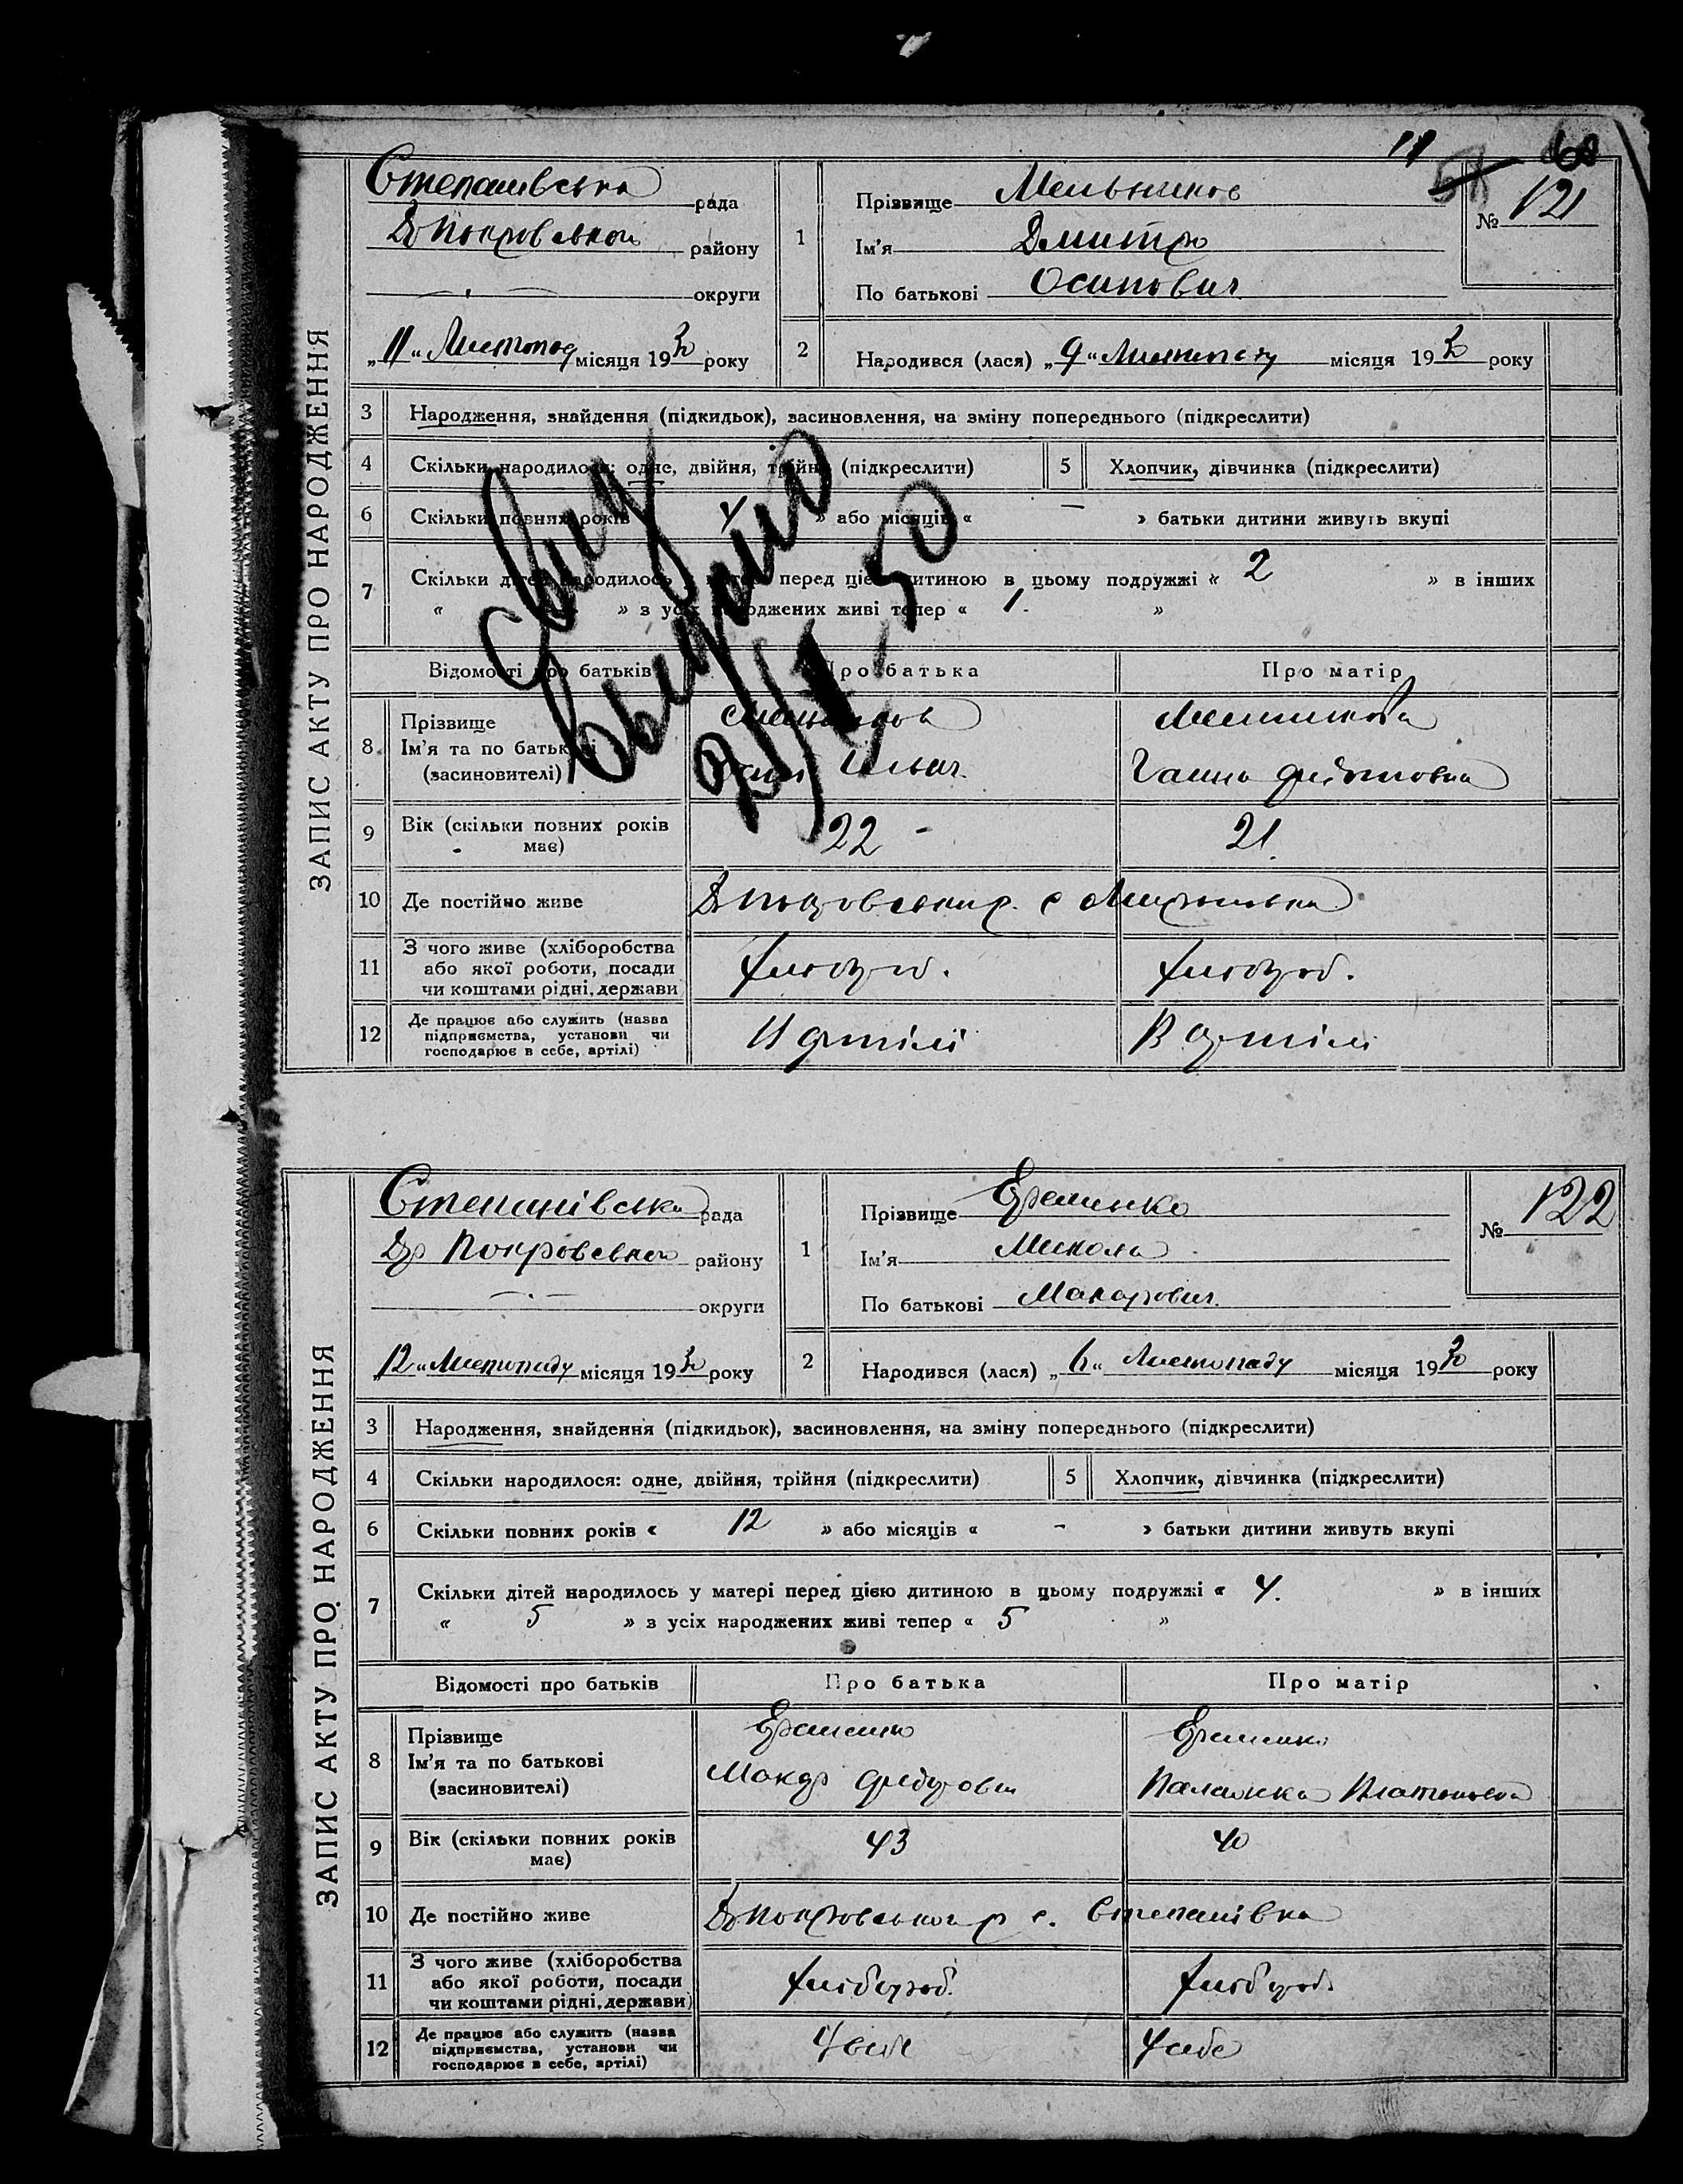 11 68
ЗАПИС АКТУ ПРО НАРОДЖЕННЯ
Степанівська рада
Др Покровського району
округи
„11“ Листопад місяця 1930 року
1
Прізвище Мельников
Ім'я Дмитро
По батькові Осипович
№ 121
2 Народився (лася) „9“ Листопаду місяця 1930 року
3 Народження, знайдення (підкидьок), засиновлення, на зміну попереднього (підкреслити)
4 Скільки народилося: одне, двійня, трійня (підкреслити) 5 Хлопчик, дівчинка (підкреслити)
6 Скільки повних років « 4 » або місяців « — » батьки дитини живуть вкупі
7 Скільки дітей народилось у матері перед цією дитиною в цьому подружжі « 2 » в інших
« » з усіх народжених живі тепер « 1. »
Відомості про батьків Про батька Про матір
8. Прізвище
Ім'я та по батькові
(засновителі)
Ганна
9 Вік (скільки повних років
має)
22 - 21.
10 Де постійно живе
11 З чого живе (хліборобства
або якої роботи, посади
чи коштами рідні, держави)
хлібороб. хлібороб.
12 Де працює або служить (назва
підприємства, установи чи
господарює в себе, артілі)
В артілі В артілі
Свид
выдано
50
ЗАПИС АКТУ ПРО НАРОДЖЕННЯ
Степанівська рада
Др Покровського району
округи
„12“ Листопаду місяця 1930 року
1
Прізвище Єременко
Ім'я Микола
По батькові Макарович
№ 122
2 Народився (лася) „6“ Листопаду місяця 1930 року
3 Народження, знайдення (підкидьок), засиновлення, на зміну попереднього (підкреслити)
4 Скільки народилося: одне, двійня, трійня (підкреслити) 5 Хлопчик, дівчинка (підкреслити)
6 Скільки повних років « 12 » або місяців « - » батьки дитини живуть вкупі
7 Скільки дітей народилось у матері перед цією дитиною в цьому подружжі « 4. » в інших
« 5 » з усіх народжених живі тепер « 5 »
Відомості про батьків Про батька Про матір
8 Прізвище
Ім'я та по батькові
(засиновителі)
Єременко Єременко
Макар Федорович Палажка Платонова
9 Вік (скільки повних років
має)
43 40
10 Де постійно живе Др Покровського р с. Степанівка
11 З чого живе (хліборобства
або якої роботи, посади
чи коштами рідні, держави)
хлібороб. хлібороб.
12 Де працює або служить (назва
підприємства, установи чи
господарює в себе, артілі)
У себе У себе